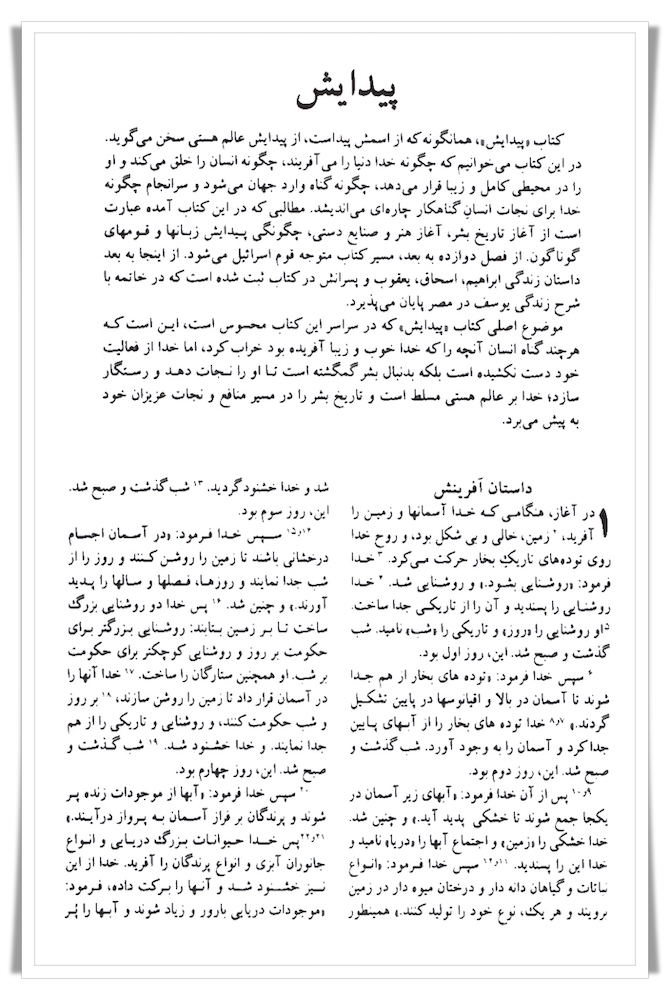 پیدایش
کتاب «پیدایش»، همانگونه که از اسمش پیداست، از پیدایش عالم هستی سخن می‌گوید.
در این کتاب می‌خوانیم که چگونه خدا دنیا را می‌آفریند، چگونه انسان را خلق می‌کند و او
را در محیطی کامل و زیبا قرار می‌دهد، چگونه گناه وارد جهان می‌شود و سرانجام چگونه
خدا برای نجات انسانِ گناهکار چاره‌ای می‌اندیشد. مطالبی که در این کتاب آمده عبارت
است از آغاز تاریخ بشر، آغاز هنر و صنایع دستی، چگونگی پیدایش زبانها و قومهای
گوناگون. از فصل دوازده به بعد، مسیر کتاب متوجه قوم اسرائیل می‌شود. از اینجا به بعد
داستان زندگی ابراهیم، اسحاق، یعقوب و پسرانش در کتاب ثبت شده است که در خاتمه با
شرح زندگی یوسف در مصر پایان می‌پذیرد.
موضوع اصلی کتاب «پیدایش» که در سراسر این کتاب محسوس است، این است که
هرچند گناه انسان آنچه را که خدا خوب و زیبا آفریده بود خراب کرد، اما خدا از فعالیت
خود دست نکشیده است بلکه بدنبال بشر گمگشته است تا او را نجات دهد و رستگار
سازد؛ خدا بر عالم هستی مسلط است و تاریخ بشر را در مسیر منافع و نجات عزیزان خود
به پیش می‌برد.
داستان آفرینش
۱ در آغاز، هنگامی که خدا آسمانها و زمین را
آفرید، ۲ زمین، خالی و بی شکل بود، و روح خدا
روی توده‌های تاریک بخار حرکت می‌کرد. ۳ خدا
فرمود: «روشنایی بشود.» و روشنایی شد. ۴ خدا
روشنایی را پسندید و آن را از تاریکی جدا ساخت.
۵ او روشنایی را «روز» و تاریکی را «شب» نامید. شب
گذشت و صبح شد. این، روز اول بود.
۶ سپس خدا فرمود: «توده های بخار از هم جدا
شوند تا آسمان در بالا و اقیانوسها در پایین تشکیل
گردند.» ۷و۸ خدا توده های بخار را از آبهای پایین
جدا کرد و آسمان را به وجود آورد. شب گذشت و
صبح شد. این، روز دوم بود.
۹و۱۰ پس از آن خدا فرمود: «آبهای زیر آسمان در
یکجا جمع شوند تا خشکی پدید آید.» و چنین شد.
خدا خشکی را «زمین» و اجتماع آبها را «دریا» نامید و
خدا این را پسندید. ۱۱و۱۲ سپس خدا فرمود: «انواع
نباتات و گیاهان دانه دار و درختان میوه دار در زمین
برویند و هر یک، نوع خود را تولید کنند.» همینطور
شد و خدا خشنود گردید. ۱۳ شب گذشت و صبح شد.
این، روز سوم بود.
۱۴و۱۵ سپس خدا فرمود: «در آسمان اجسام
درخشانی باشند تا زمین را روشن کنند و روز را از
شب جدا نمایند و روزها، فصلها و سالها را پدید
آورند.» و چنین شد. ۱۶ پس خدا دو روشنایی بزرگ
ساخت تا بر زمین بتابند: روشنایی بزرگتر برای
حکومت بر روز و روشنایی کوچکتر برای حکومت
بر شب. او همچنین ستارگان را ساخت. ۱۷ خدا آنها را
در آسمان قرار داد تا زمین را روشن سازند، ۱۸ بر روز
و شب حکومت کنند، و روشنایی و تاریکی را از هم
جدا نمایند. و خدا خشنود شد. ۱۹ شب گذشت و
صبح شد. این، روز چهارم بود.
۲۰ سپس خدا فرمود: «آبها از موجودات زنده پر
شوند و پرندگان بر فراز آسمان به پرواز درآیند.»
۲۱و۲۲ پس خدا حیوانات بزرگ دریایی و انواع
جانوران آبزی و انواع پرندگان را آفرید. خدا از این
نیز خشنود شد و آنها را برکت داده، فرمود:
«موجودات دریایی بارور و زیاد شوند و آبها را پُر